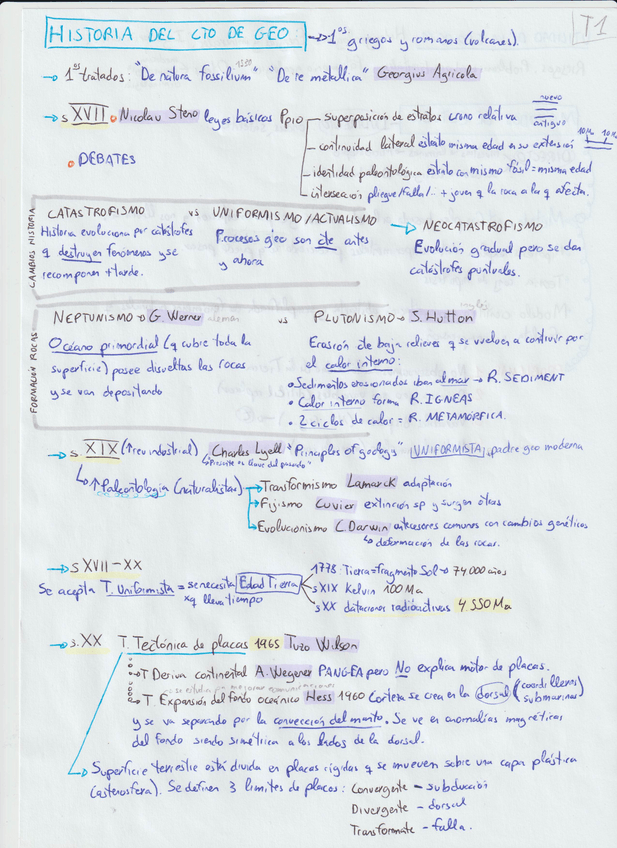 HISTORIA DEL CTO DE GEO → 1os griegos y romanos (volcanes).
T1
→ 1os tratados: "De natura fossilium" "De re metallica" Georgius Agricola
→ s XVII • Nicolau Steno leyes básicas Ppio
superposición de estratos crono relativa
nuevo
antiguo
continuidad lateral estrato misma edad en su extensión
10Ma 10Ma
identidad paleontológica estrato con mismo fósil = misma edad
intersección pliegue/falla/... + joven q la roca a la q afecta.
• DEBATES
CAMBIOS HISTORIA
CATASTROFISMO vs UNIFORMISMO/ACTUALISMO
Historia evoluciona por catástrofes
q destruyen fenómenos y se
recomponen + tarde.
Procesos geo son cte antes
y ahora
→ NEOCATASTROFISMO
Evolución gradual pero se dan
catástrofes puntuales.
FORMACIÓN ROCAS
NEPTUNISMO → G. Werner alemán vs PLUTONISMO → S. Hutton
Océano primordial (q cubre toda la
superficie) posee disueltas las rocas
y se van depositando
Erosión cte baja relieves q se vuelven a contruir por
el calor interno:
• Sedimentos erosionados iban al mar → R. SEDIMENT
• Calor interno forma R. IGNEAS
• 2 ciclos de calor = R. METAMÓRFICA.
→ s. XIX (↑rev industrial) Charles Lyell "Principles of geology" UNIFORMISTA, padre geo moderna
"Presente es llave del pasado"
↑ Paleontología (naturalistas)
→ Transformismo Lamarck adaptación
→ Fijismo Cuvier extinción sp y surgen otras
→ Evolucionismo C. Darwin antecesores comunes con cambios genéticos
↳ deformación de las rocas.
→ s XVII-XX
Se acepta T. Uniformista = se necesita Edad Tierra
xq lleva tiempo
1778: Tierra = fragmento Sol → 74 000 años
s XIX Kelvin 100 Ma
s XX dataciones radioactivas 4 550 Ma
→ s. XX T. Tectónica de placas 1965 Tuzo Wilson
→ T Deriva continental A. Wegener PANGEA pero No explica motor de placas.
→ T. Expansión del fondo oceánico Hess 1960 Corteza se crea en la dorsal (cordilleras submarinas)
y se va separando por la convección del manto. Se ve en anomalías magnéticas
del fondo siendo simétrica a los lados de la dorsal.
→ Superficie terrestre está divida en placas rígidas q se mueven sobre una capa plástica
(astenosfera). Se definen 3 límites de placas: Convergente - subducción
Divergente - dorsal
Transformate - falla.